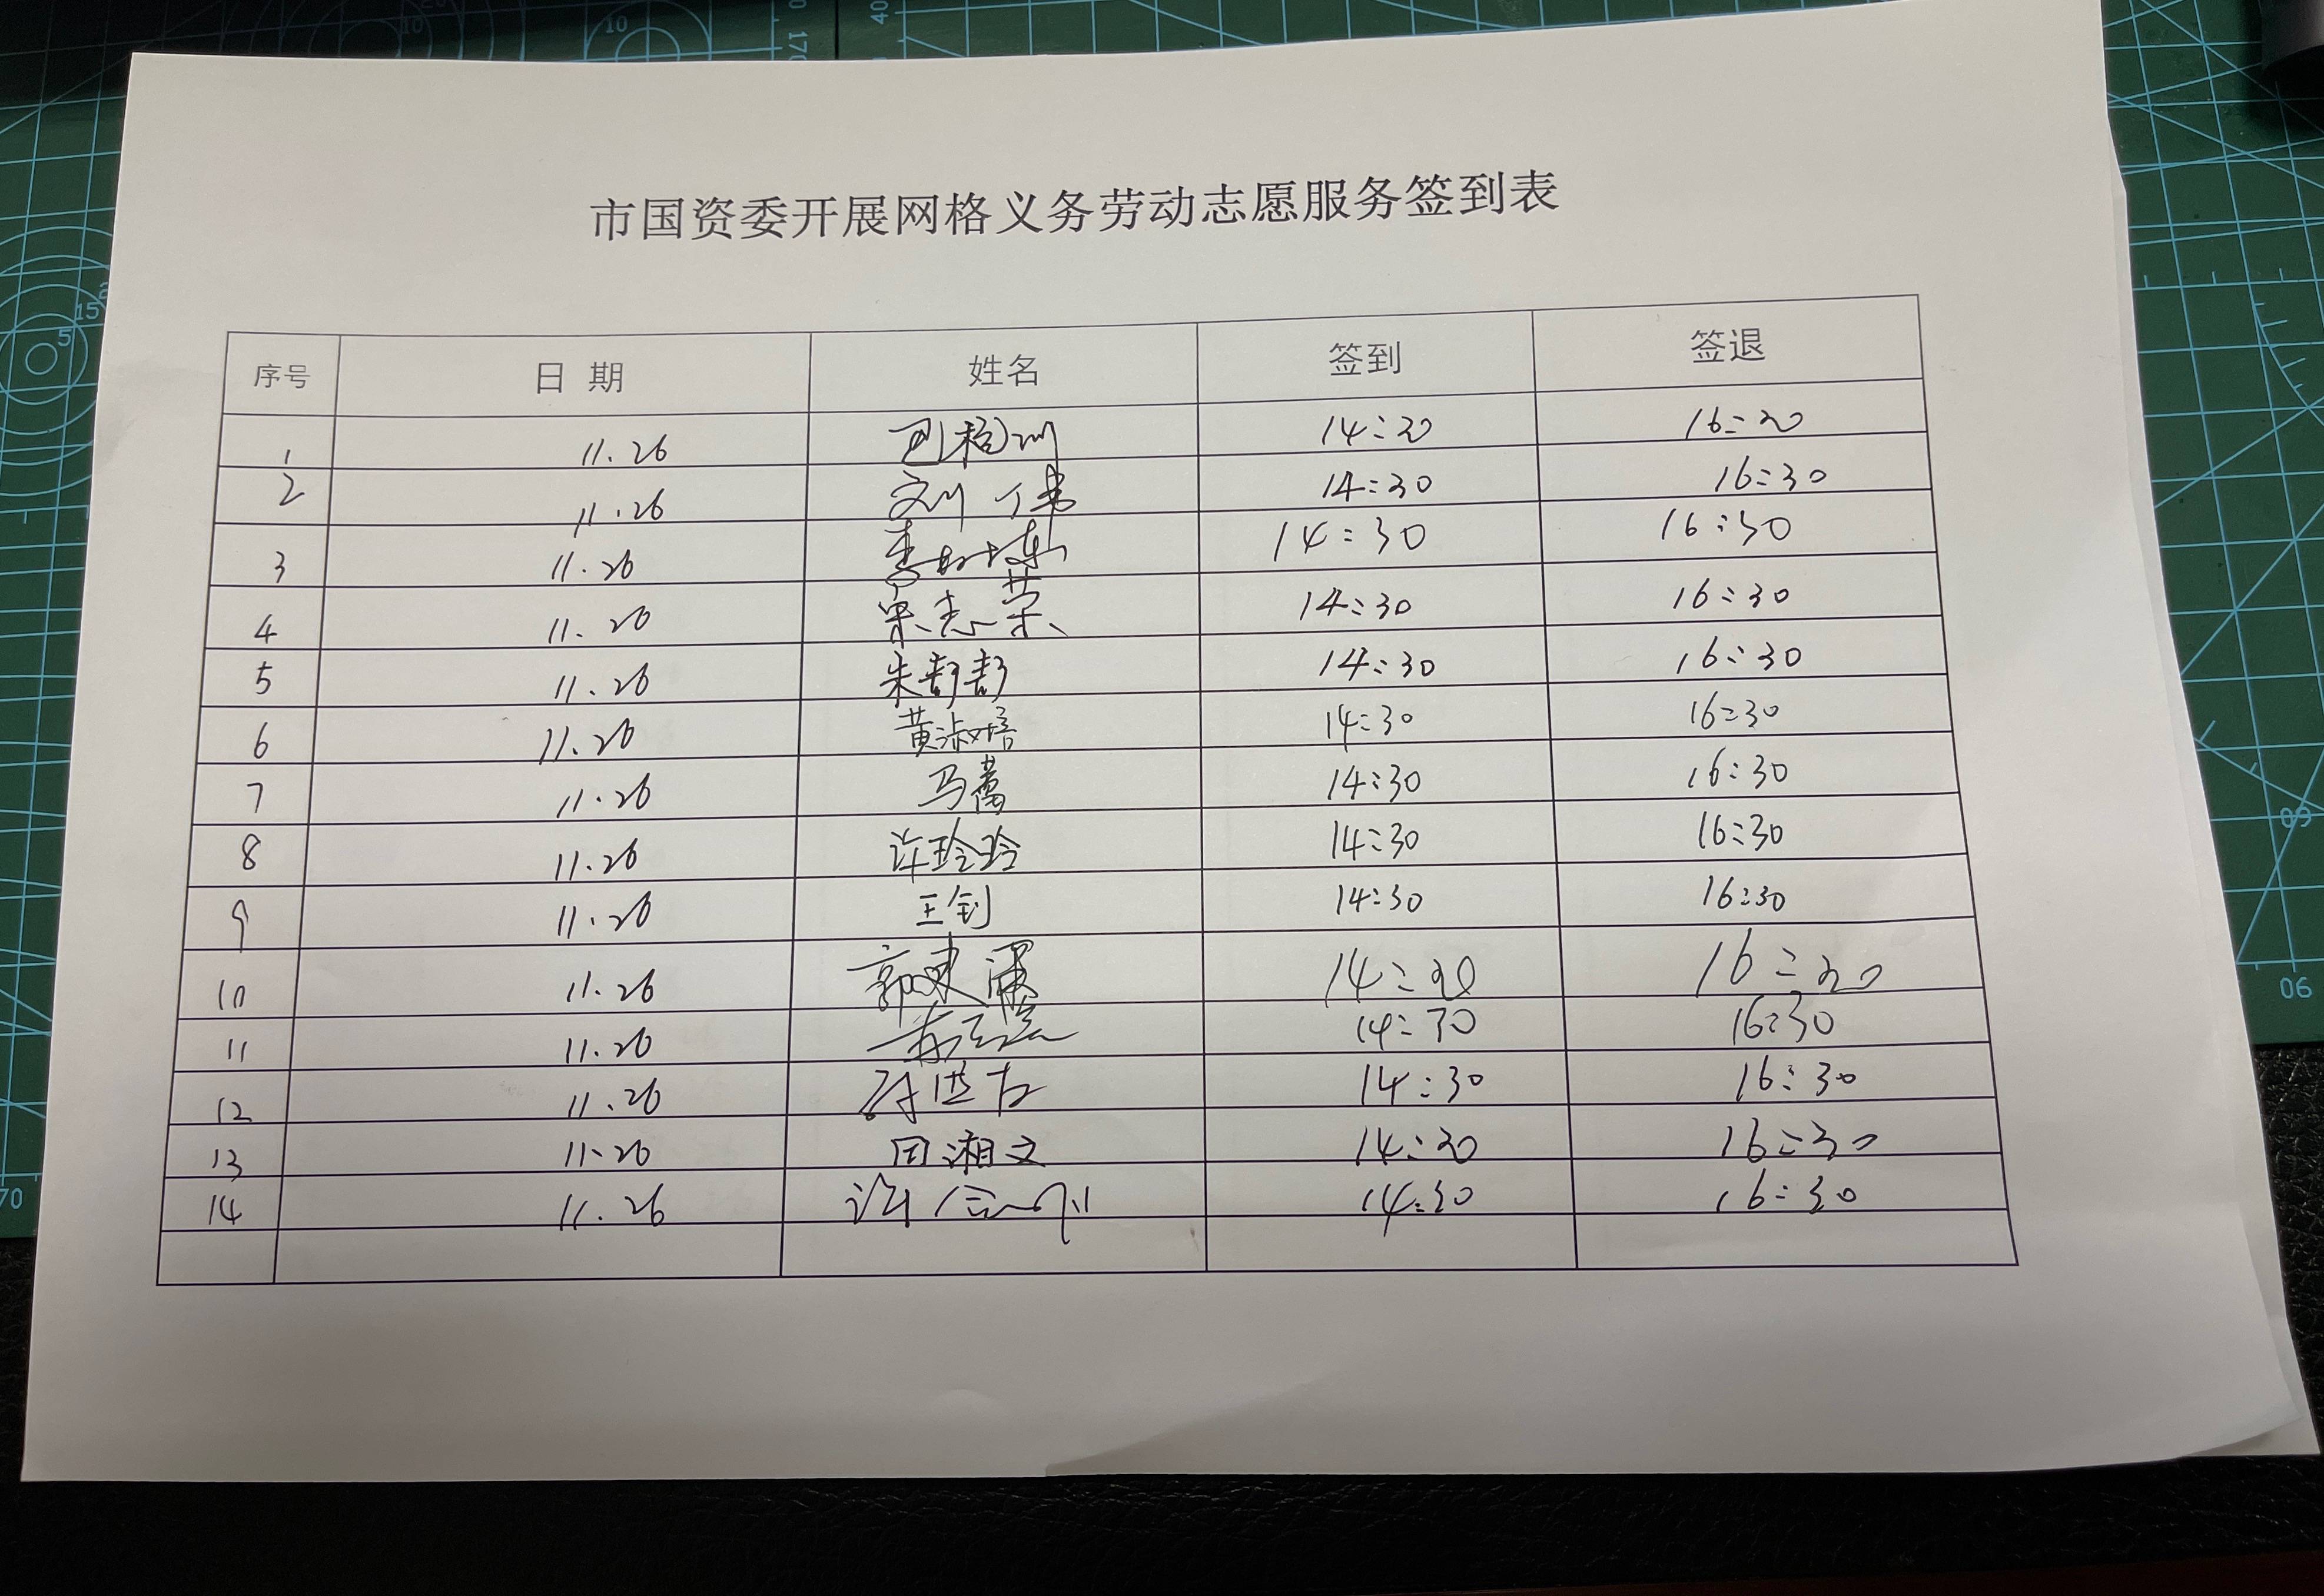 市国资委开展网格义务劳动志愿服务签到表
序号 日 期 姓名 签到 签退
1 11.26 14:30 16:30
2 11.26 刘丁惠 14:30 16:30
3 11.26 14:30 16:30
4 11.26 宋志荣 14:30 16:30
5 11.26 朱彭彭 14:30 16:30
6 11.26 黄淑培 14:30 16:30
7 11.26 马蒿 14:30 16:30
8 11.26 许玲玲 14:30 16:30
9 11.26 王钊 14:30 16:30
10 11.26 14:30 16:30
11 11.26 14:30 16:30
12 11.26 14:30 16:30
13 11.26 周湘文 14:30 16:30
14 11.26 14:30 16:30